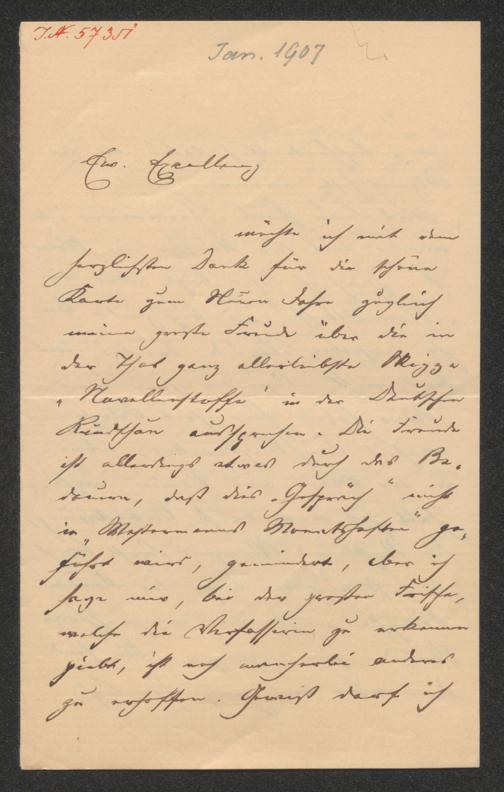 J.N. 57351
Jan. 1907
Ew. Excellenz
möchte ich mit dem
herzlichsten Dank für die schöne
Karte zum Neuen Jahre zugleich
meine große Freude über die in
der That ganz allerliebste Skizze
„Novellenstoffe“ in der Deutschen
Rundschau aussprechen. Die Freude
ist allerdings etwas durch das Be-
dauern, daß dies „Gespräch“ nicht
in „Westermanns Monatsheften“ ge-
führt wird, gemindert, aber ich
sage mir, bei der großen Frische,
welche die Verfasserin zu erkennen
giebt, ist noch mancherlei anderes
zu erhoffen. Gewiß darf ich